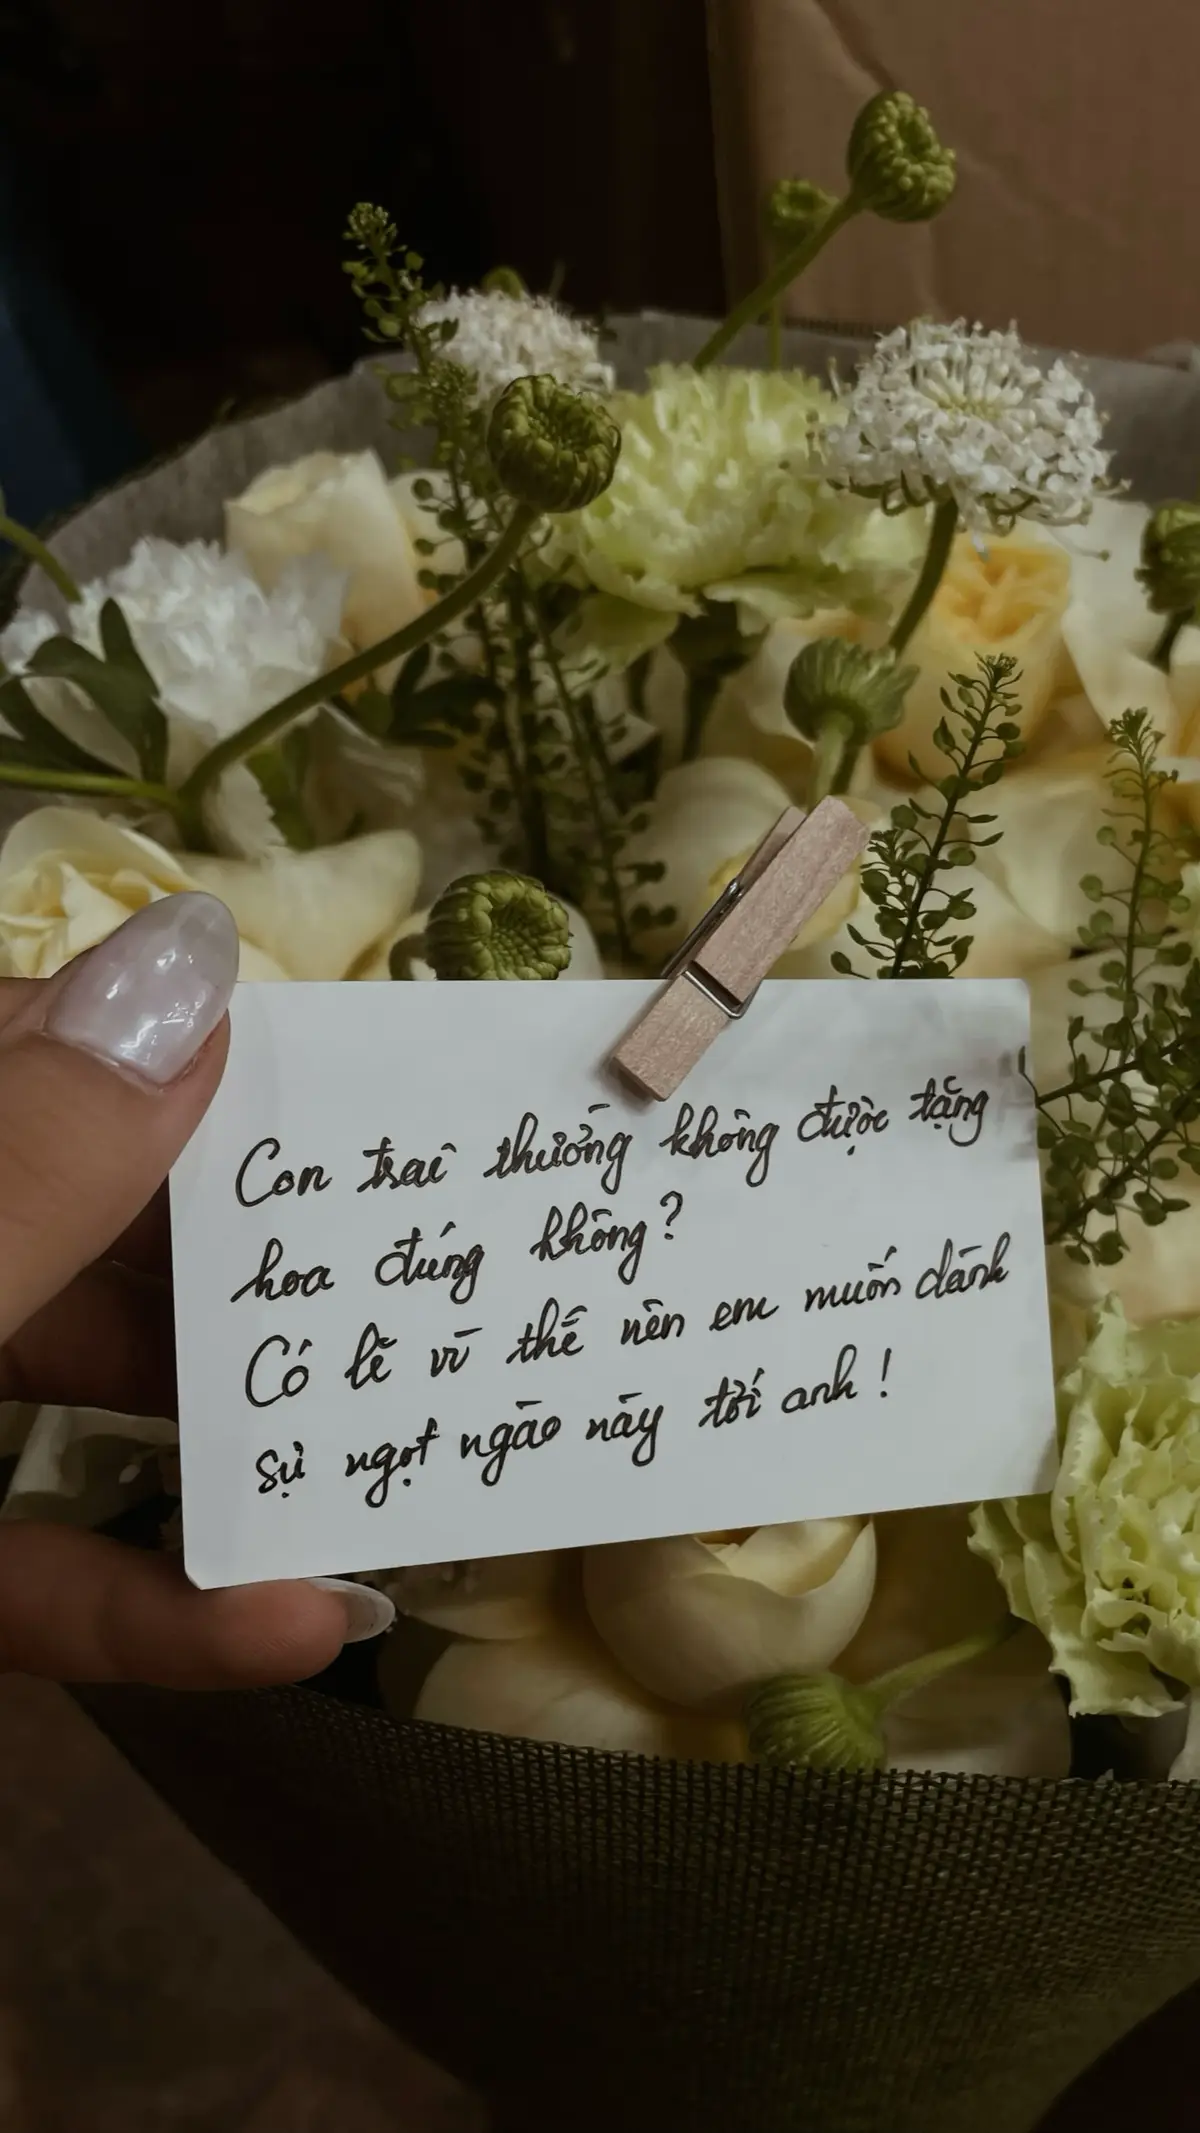 Con trai thường không được tặng
hoa đúng không?
Có lẽ vì thế nên em muốn dành
sự ngọt ngào này tới anh!